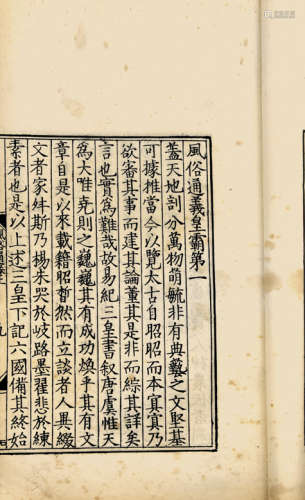 風俗通義皇霸第一
蓋天地剖分萬物萌毓非有典藝之文堅基
可據推當今以覽太古自昭昭而本冥冥乃
欲審其事而建其論董其是非而綜其詳矣
言也實為難哉故易紀三皇書叙唐虞惟天
為大唯堯則之巍巍其有成功煥乎其有文
章自是以來載籍昭晢然而立談者人異綴
文者家舛斯乃楊朱哭於歧路墨翟悲於練
素者也是以上述三皇下記六國備其終始